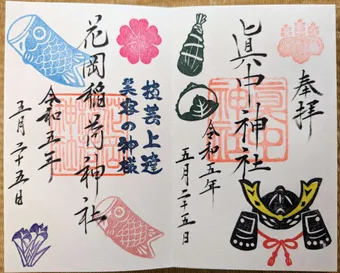 奉拝
眞中神社
令和五年
五月二十五日
技芸上達
笑容の神様
花岡稲荷神社
令和五年
五月二十五日